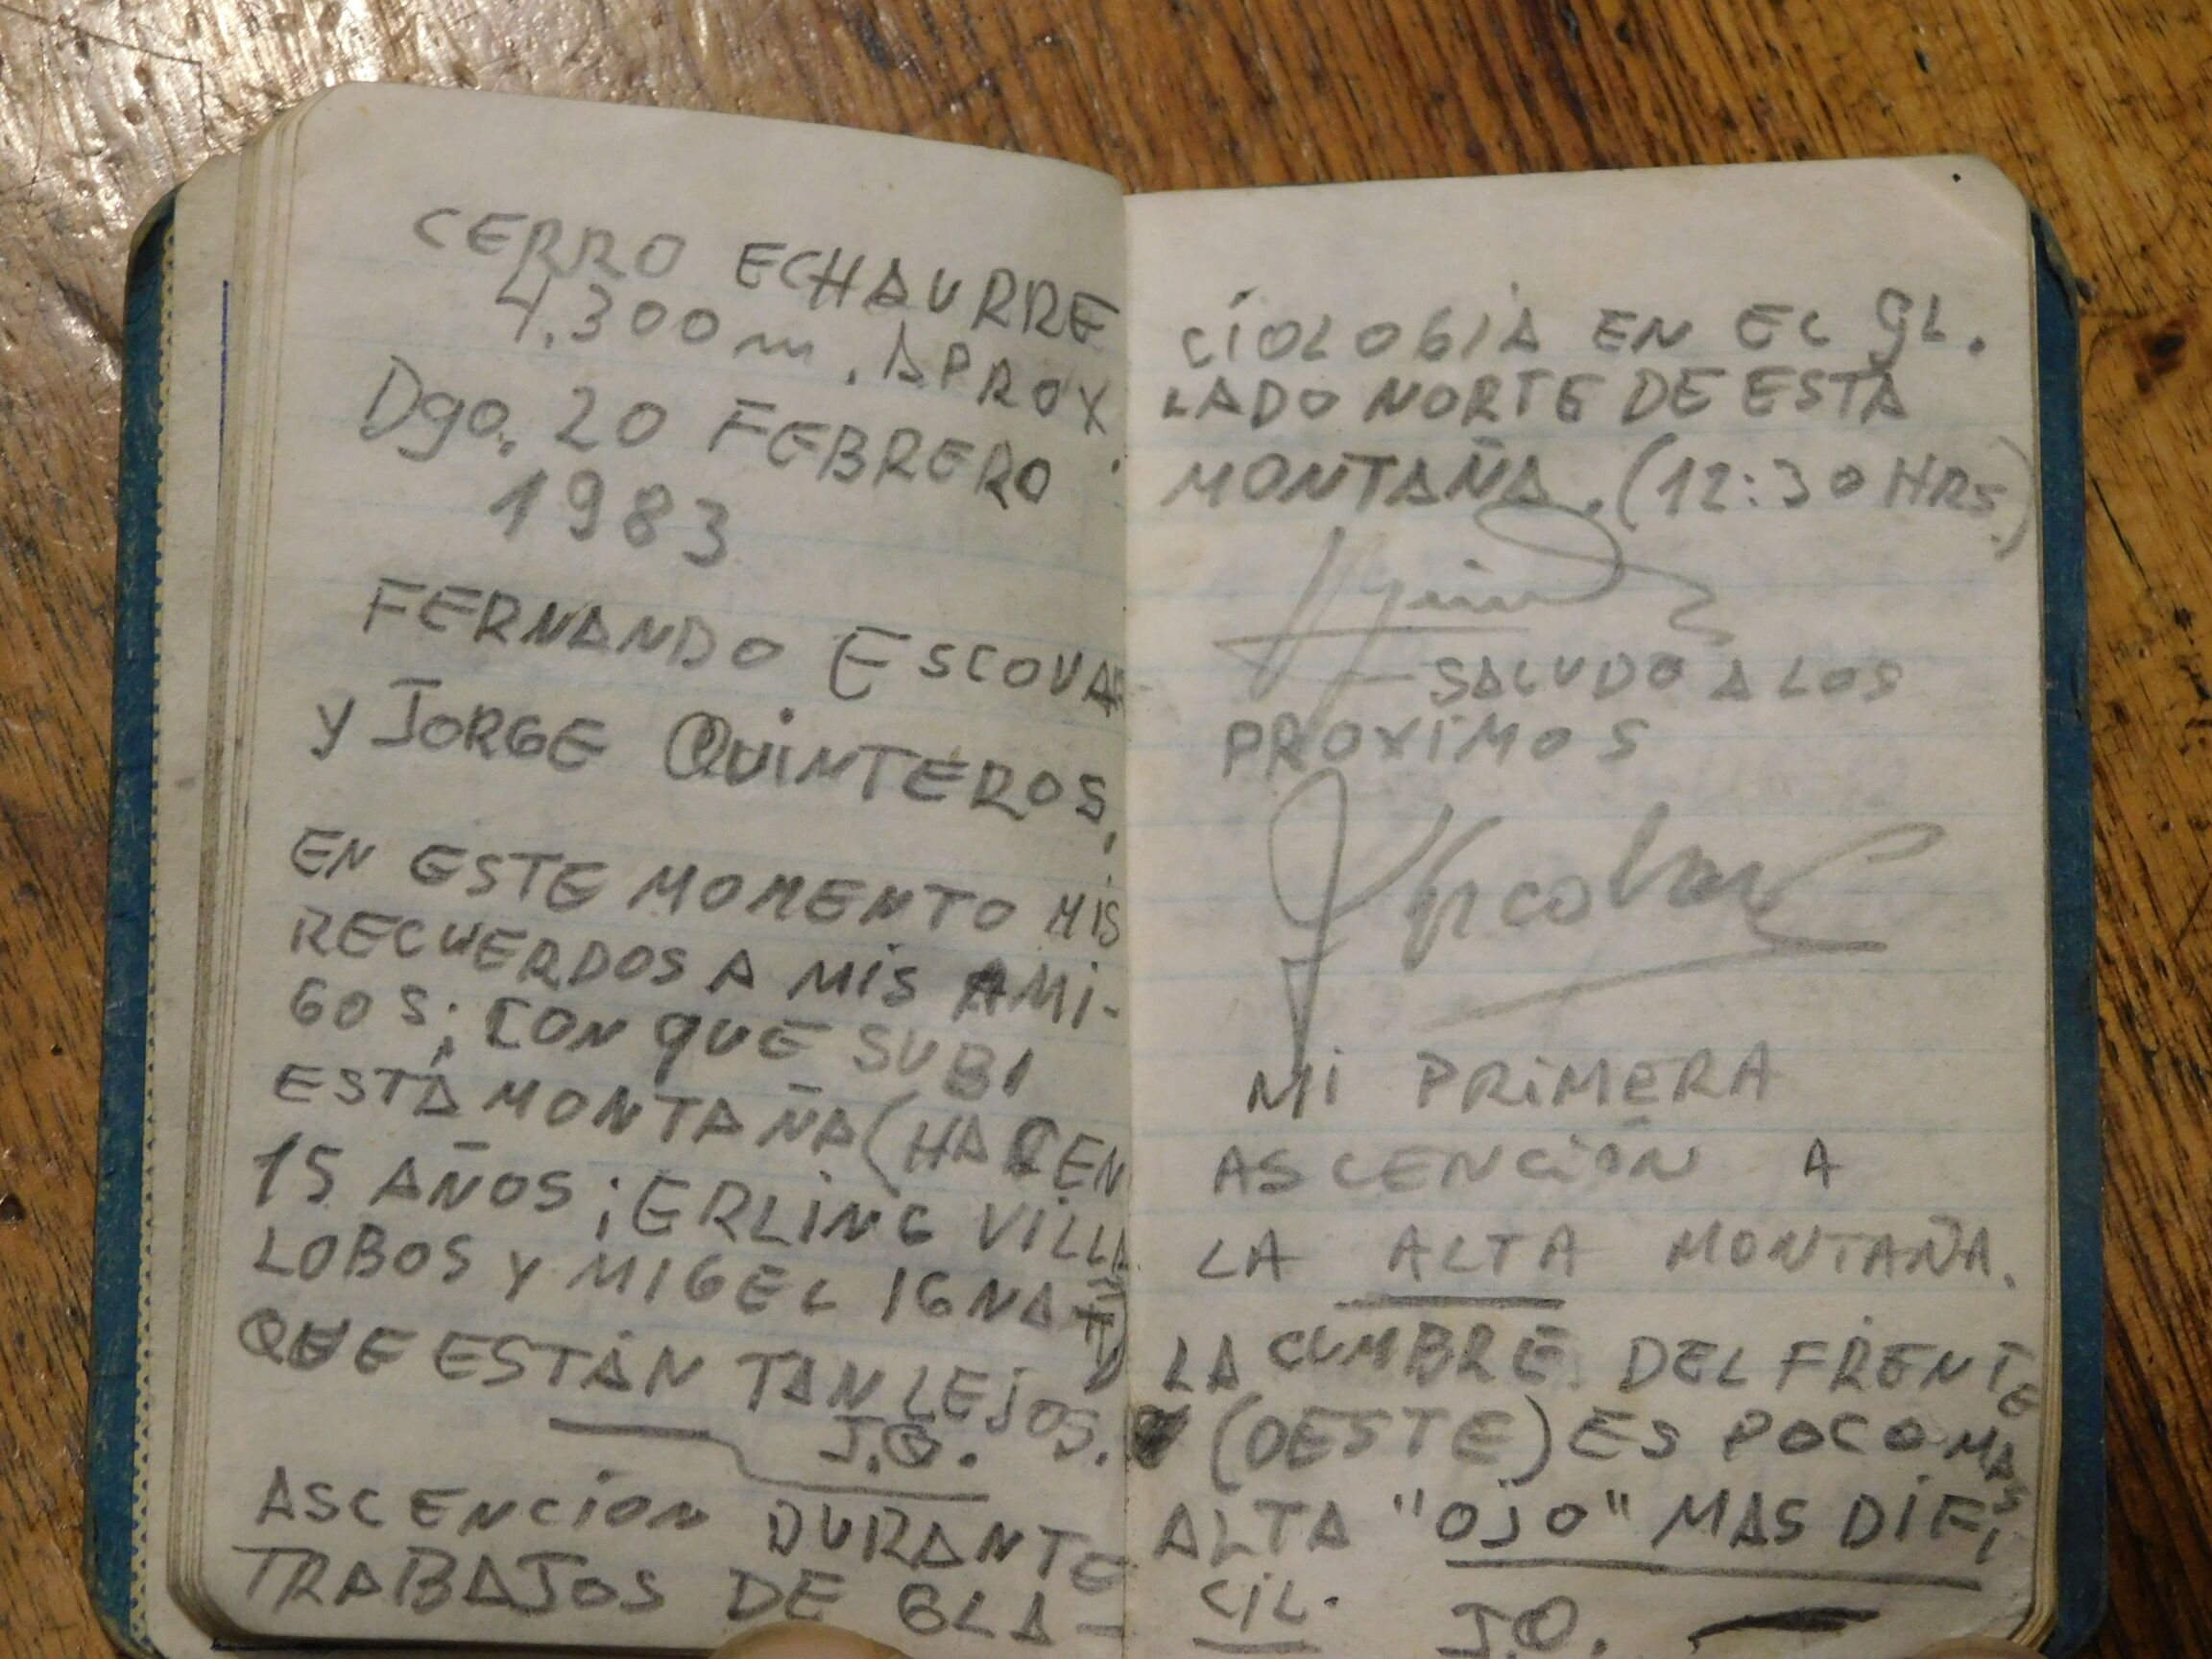 CERRO ECHAURRE
4.300 m. APROX.
Dgo. 20 FEBRERO
1983
FERNANDO ESCOVAR
Y JORGE QUINTEROS,
EN ESTE MOMENTO MIS
RECUERDOS A MIS AMI-
GOS; CON QUE SUBI
ESTÁ MONTAÑA (HACEN
15 AÑOS; ERLING VILLA
LOBOS Y MIGEL IGNAT)
QUE ESTÁN TAN LEJOS.
J.Q.
ASCENCION DURANTE
TRABAJOS DE GLA-
CIOLOGIA EN EL GL.
LADO NORTE DE ESTA
MONTAÑA. (12:30 HRS.)
SALUDO A LOS
PROXIMOS
Escobar
MI PRIMERA
ASCENCIÓN A
LA ALTA MONTAÑA.
LA CUMBRE DEL FRENTE
(OESTE) ES POCO MAS
ALTA "OJO" MAS DIFI
CIL.
J.Q.